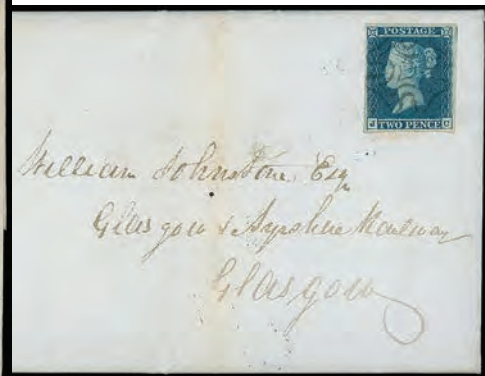 POSTAGE
TWO PENCE
William Johnstone Esq
Glasgow & Ayrshire Railway
Glasgow